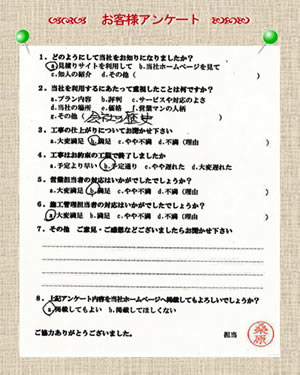 お客様アンケート
1．どのようにして当社をお知りになりましたか？
a.見積りサイトを利用して b.当社ホームページを見て
c.知人の紹介 d.その他（ ）
2．当社を利用するにあたって重視したことは何ですか？
a.プラン内容 b.評判 c.サービスや対応のよさ
d.当社の場所 e.価格 f.営業マンの人柄
g.その他（ 会社の歴史 ）
3．工事の仕上がりについてお聞かせ下さい
a.大変満足 b.満足 c.やや不満 d.不満（理由 ）
4．工事はお約束の工期で終了しましたか
a.予定より早い b.予定通り c.やや遅れた d.大変遅れた
5．営業担当者の対応はいかがでしたでしょうか？
a.大変満足 b.満足 c.やや不満 d.不満（理由 ）
6．施工管理担当者の対応はいかがでしたでしょうか？
a.大変満足 b.満足 c.やや不満 d.不満（理由 ）
7．その他 ご意見・ご感想などございましたらお聞かせ下さい
8．上記アンケート内容を当社ホームページへ掲載してもよろしいでしょうか？
a.掲載してもよい b.掲載してほしくない
ご協力ありがとうございました。 担当 桑原